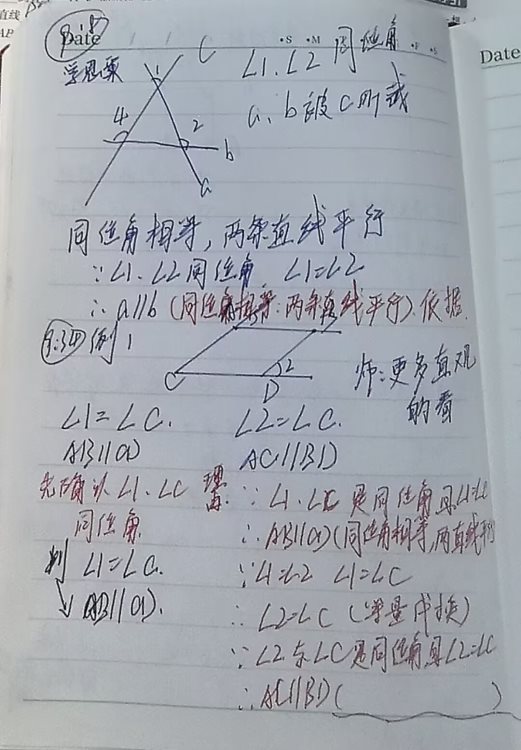 Date
•S •M
Date
学思案
∠1、∠2 同位角
a、b被c所截
C
1
4
2
b
a
同位角相等，两条直线平行
∵∠1、∠2同位角，∠1=∠2
∴a∥b（同位角相等.两条直线平行）.依据.
例1
C
D
2
师：更多直观
的看
∠1=∠C. ∠2=∠C.
AB∥CD AC∥BD
先确认∠1、∠C
同位角
则∠1=∠C.
AB∥CD.
理由：∵∠1、∠C是同位角且∠1=∠C
∴AB∥CD（同位角相等,两直线平行
∵∠1=∠2 ∠1=∠C
∴∠2=∠C（等量代换）
∵∠2与∠C是同位角且∠2=∠C
∴AC∥BD（ ）